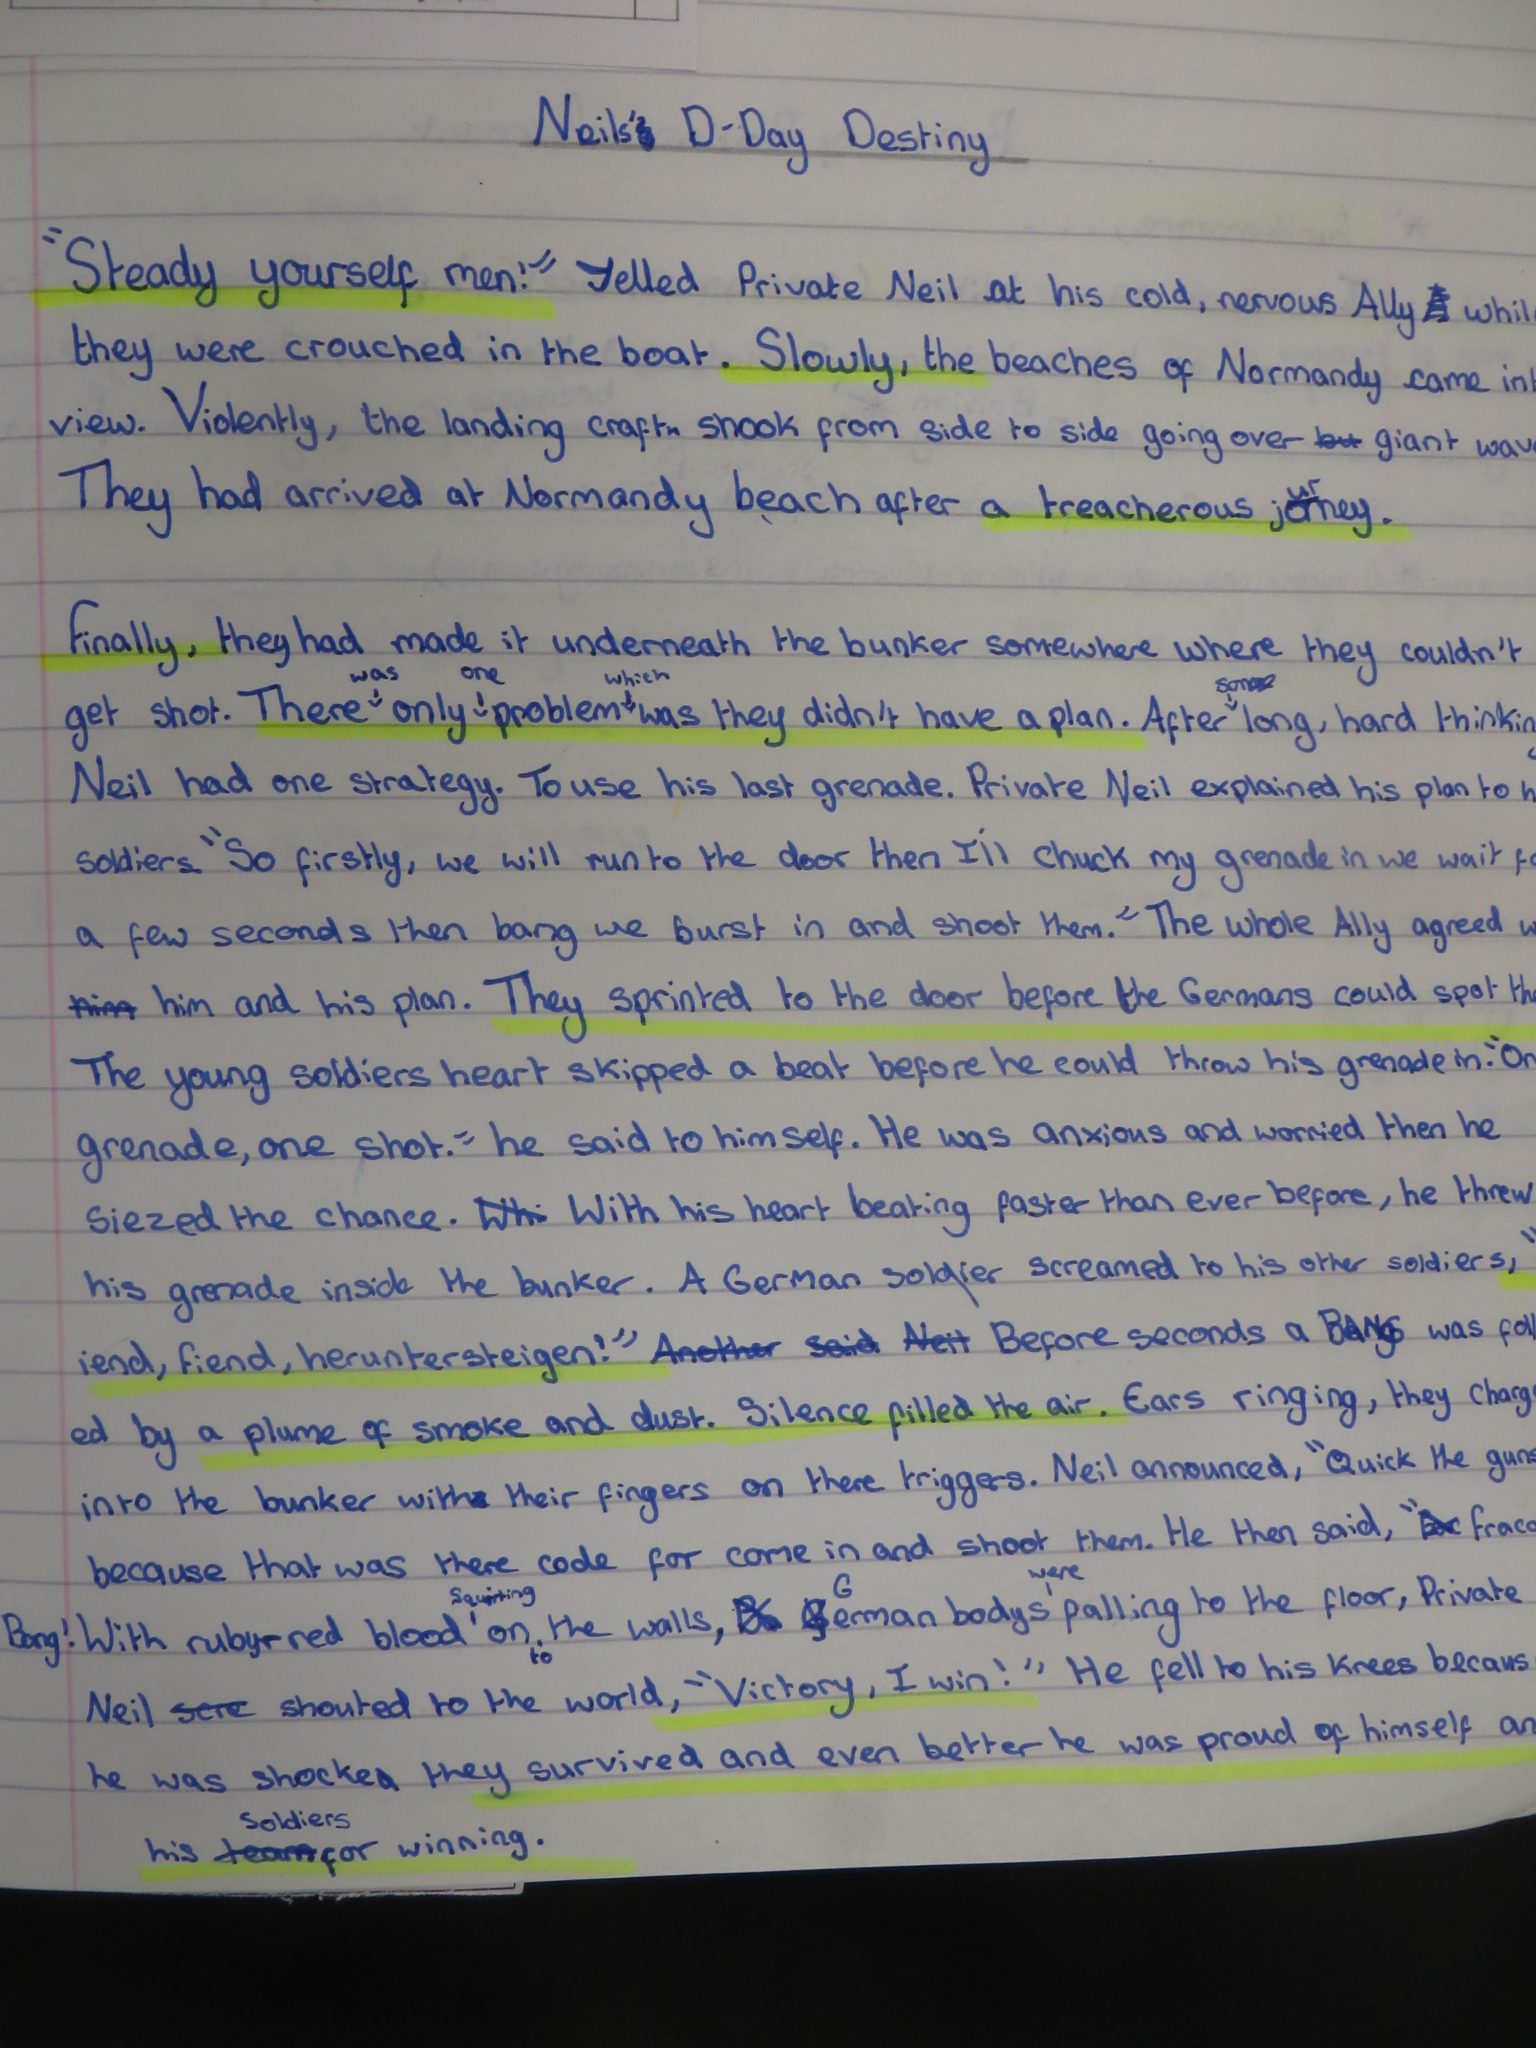 Neils's D-Day Destiny
"Steady yourself men!" Yelled Private Neil at his cold, nervous Ally whil
they were crouched in the boat. Slowly, the beaches of Normandy came int
view. Violently, the landing craft shook from side to side going over but giant wav
They had arrived at Normandy beach after a treacherous journey.
Finally, they had made it underneath the bunker somewhere where they couldn't
get shot. There was only one problem which was they didn't have a plan. After some long, hard thinkin
Neil had one strategy. To use his last grenade. Private Neil explained his plan to h
soldiers "So firstly, we will run to the door then I'll chuck my grenade in we wait fo
a few seconds then bang we burst in and shoot them." The whole Ally agreed w
him him and his plan. They sprinted to the door before the Germans could spot the
The young soldiers heart skipped a beat before he could throw his grenade in. "On
grenade, one shot." he said to himself. He was anxious and worried then he
siezed the chance. Whi With his heart beating faster than ever before, he threw
his grenade inside the bunker. A German soldier screamed to his other soldiers, "
iend, fiend, heruntersteigen!" Another said Neil Before seconds a BANG was foll
ed by a plume of smoke and dust. Silence filled the air. Ears ringing, they charg
into the bunker with their fingers on there triggers. Neil announced, "Quick the guns
because that was there code for come in and shoot them. He then said, " fraca
Bang! With ruby-red blood squirting on to the walls, German bodys were falling to the floor, Private
Neil scre shouted to the world, "Victory, I win!" He fell to his knees becaus
he was shocked they survived and even better he was proud of himself an
his team soldiers for winning.